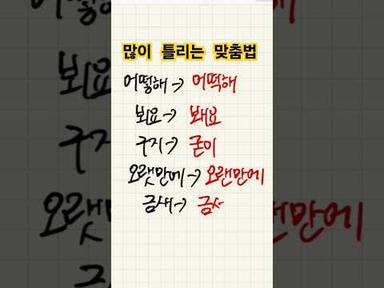 많이 틀리는 맞춤법
어떻해 → 어떡해
뵈요 → 봬요
구지 → 굳이
오랫만에 → 오랜만에
금새 → 금ㅅ